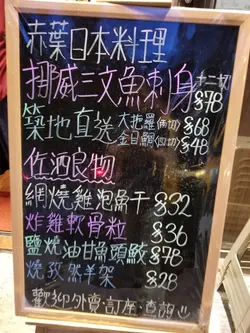 赤葉日本料理
挪威三文魚刺身 十二切 $78
築地直送 大拖羅(兩切) $68
金目鯛(四切) $48
佐酒良物
網燒雞泡魚干 $32
炸雞軟骨粒 $36
鹽燒油甘魚頭鮫 $78
燒孜然羊架 $28
歡迎外賣訂座·查詢